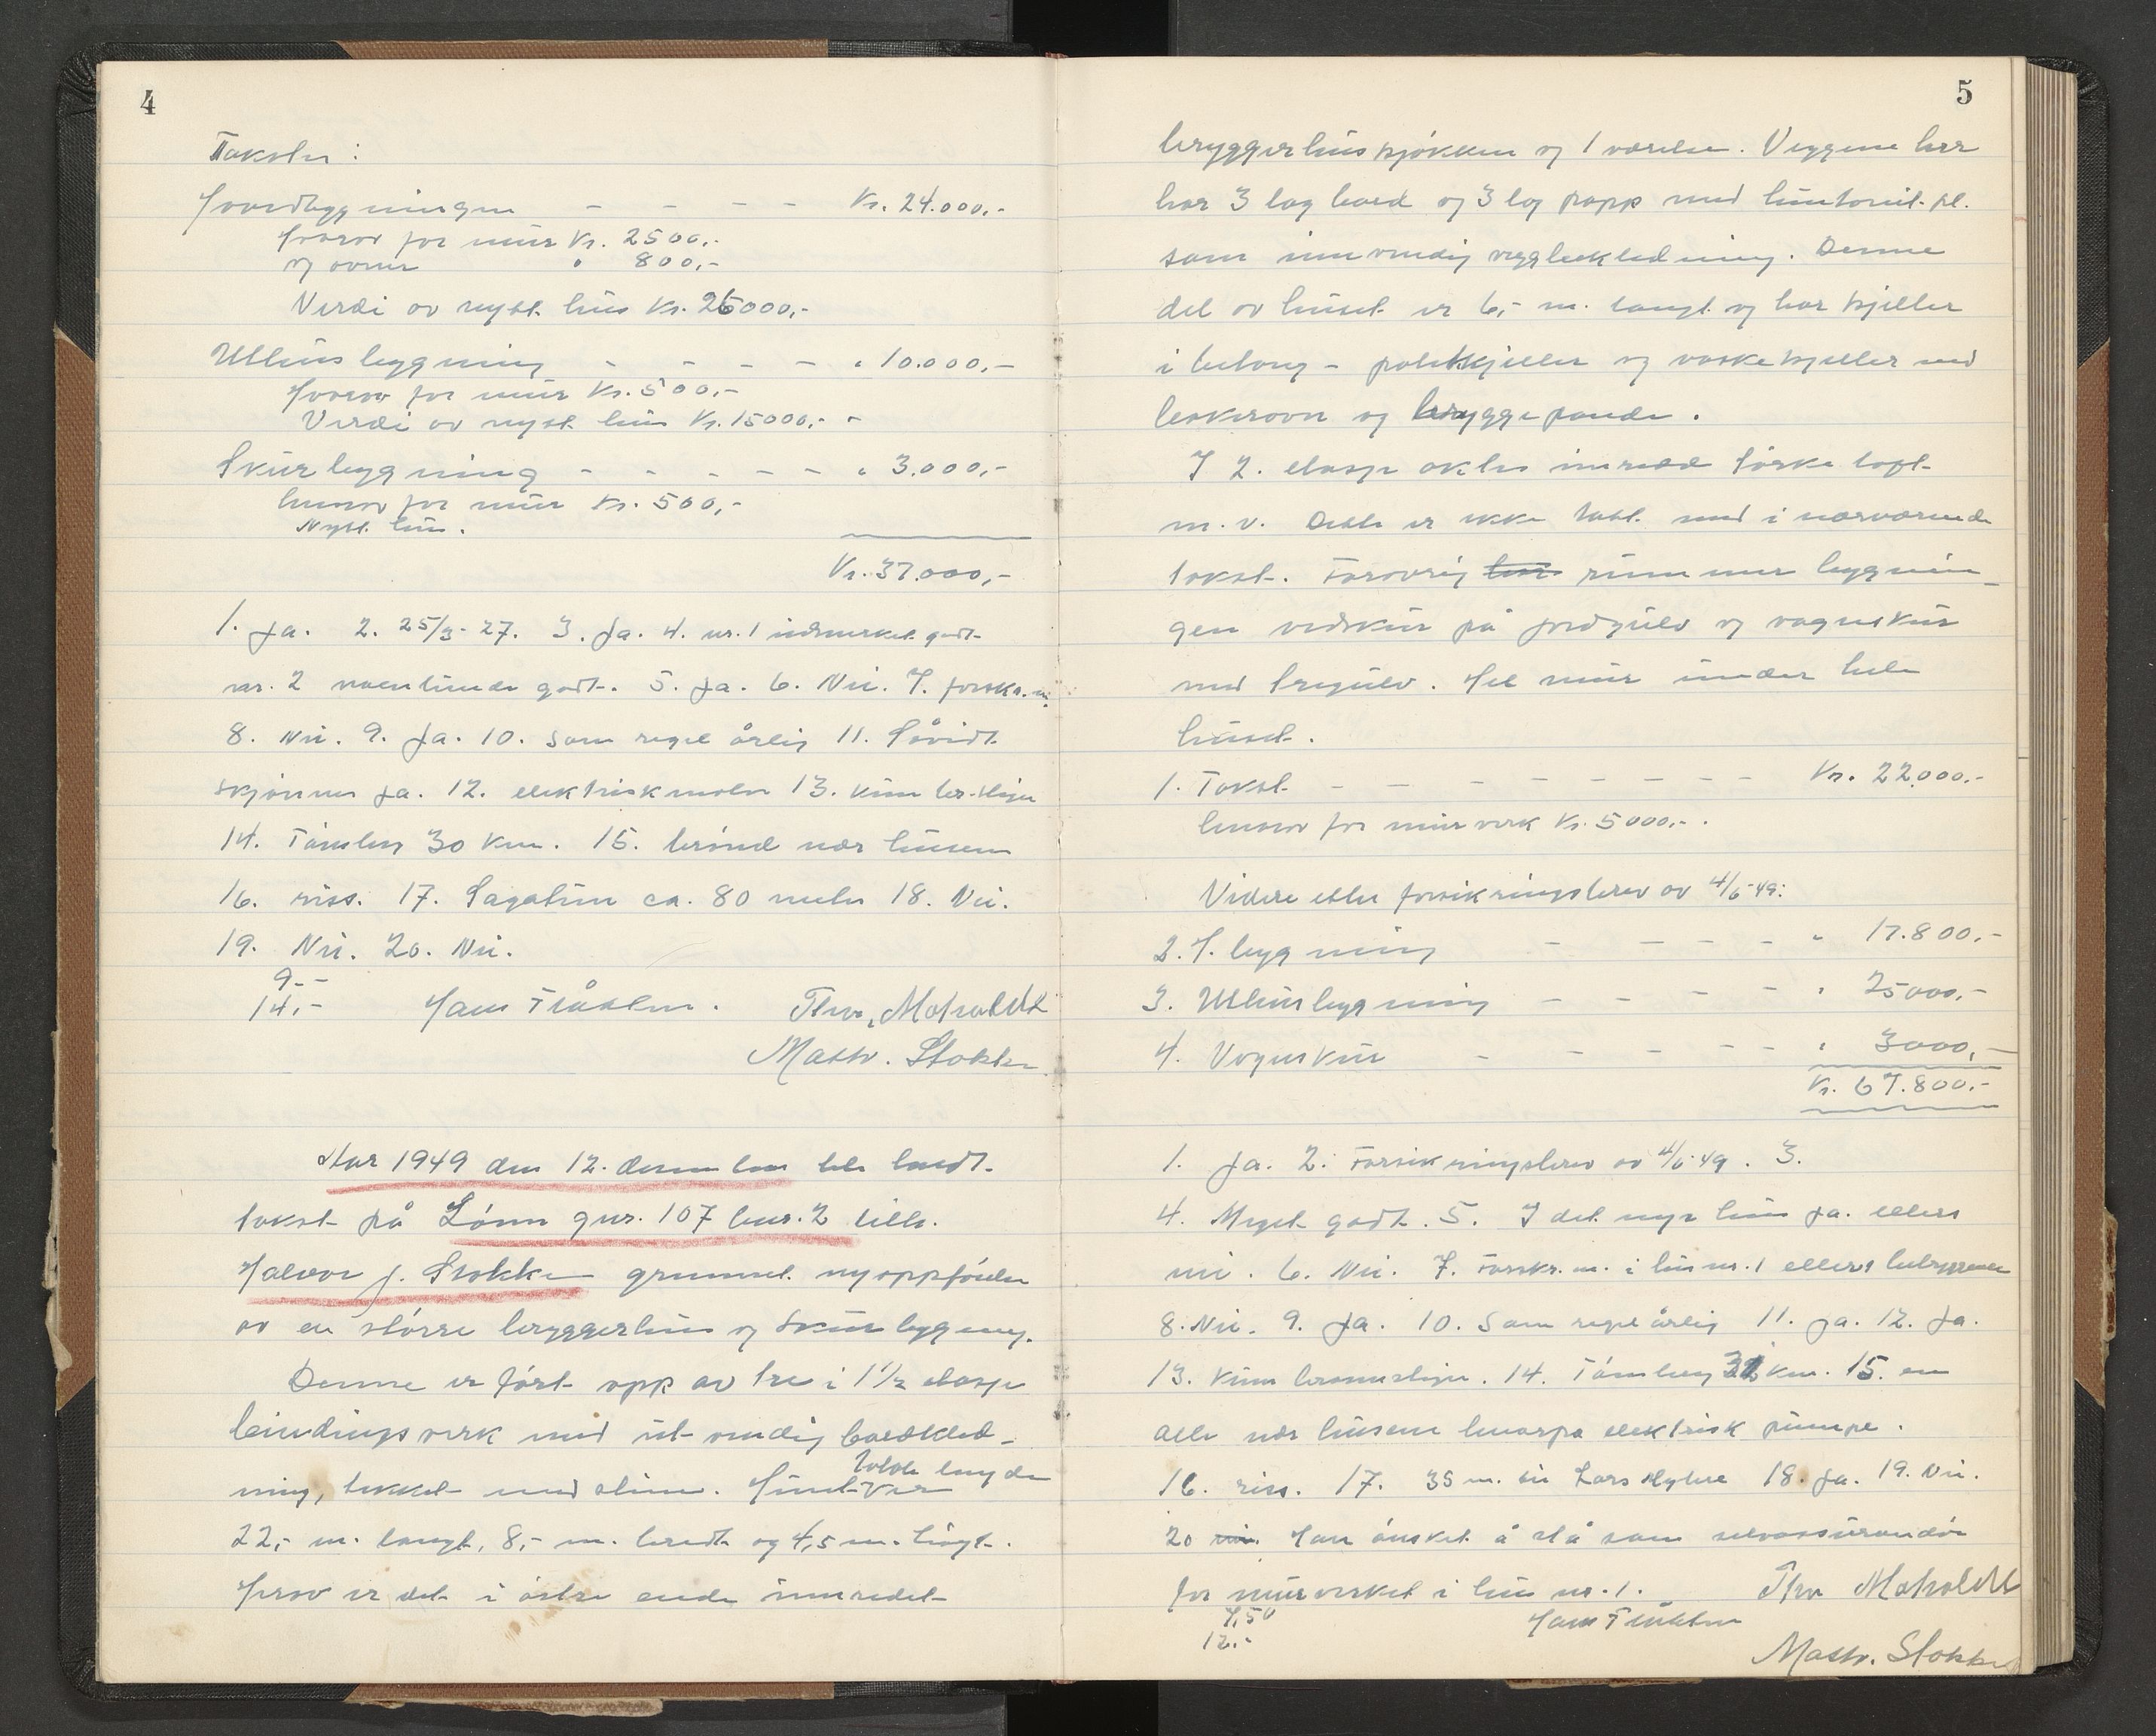 4
Takster:
Hovedbygningen - - - - Kr. 24.000,-
Hvorav for mur Kr. 2500,-
og ovner " 800,-
Verdi av nytt hus Kr. 26000,-
Uthusbygning - - - - - " 10.000,-
Hvorav for mur Kr. 500,-
Verdi av nytt hus Kr. 15000,-
Skurbygning - - - - - " 3.000,-
hvorav for mur Kr. 500,-
Nytt hus.
Kr. 37.000,-
1. Ja. 2. 25/3-27. 3. Ja. 4. nr. 1 utmerket godt
nr. 2 noenlunde godt. 5. Ja. 6. Nei. 7. forskr.m.
8. Nei. 9. Ja. 10. Som regel årlig 11. Såvidt
skjönnes ja. 12. elektriskmotor 13. Kun br.stiger
14. Tönsberg 30 km. 15. brönd nær husene
16. riss. 17. Sagatun ca. 80 meter 18. Nei.
19. Nei. 20. Nei.
9.-
14,-
Hans Tråsten. Thv. Moholdt
Mattv. Stokke
Aar 1949 den 12. desember ble holdt
takst på Lönn gnr. 107 bnr. 2 tilh.
Halvor J. Stokke grunnet nyoppförelse
av en större bryggerhus og skurbygning.
Denne er fört opp av tre i 1 1/2 etasje
bindingsverk med utvendig bordkled-
ning, tekket med sten. Huset er totale lengde
22,- m. langt, 8,- m. bredt og 4,5 m. högt.
Herav er det i östre ende innredet
5
bryggerhuskjökken og 1 værelse. Veggene her
har 3 lag bord og 3 lag papp med huntonit-pl.
som innvendig veggbekledning. Denne
del av huset er 6,- m. langt og har kjeller
i betong - potetkjeller og vaskekjeller med
bakerovn og bryggepande.
I 2. etasje aktes innred törkeloft
m. v. Dette er ikke tatt med i nærværende
takst. Forövrig rummer bygnin-
gen vedskur på jordgulv og vognskur
med tregulv. Hel mur under hele
huset.
1. Takst - - - - - - - Kr. 22.000.-
hvorav for murverk Kr. 5000,-.
Videre etter forsikringsbrev av 4/6-49:
2. H. bygning - - - - - " 17.800,-
3. Uthusbygning - - - - - " 25000,-
4. Vognskur - - - - - " 3000,-
Kr. 67.800.-
1. Ja. 2. Forsikringsbrev av 4/6-49. 3.
4. Meget godt. 5. I det nye hus ja. ellers
nei. 6. Nei. 7. Forskr.m. i hus nr. 1 ellers betryggende
8. Nei. 9. Ja. 10. Som regel årlig 11. ja. 12. Ja.
13. Kun brannstiger. 14. Tönsberg km. 15. en
dette nær husene hvorpå elektrisk pumpe.
16. riss. 17. 35 m. til Lars Mylere 18. Ja. 19. Nei.
20 nei. Han önsket å stå som selvassurandör
for murverket i hus nr. 1. Thv Moholdt
7,50
12.-
Hans Tråsten
Mattv. Stokke